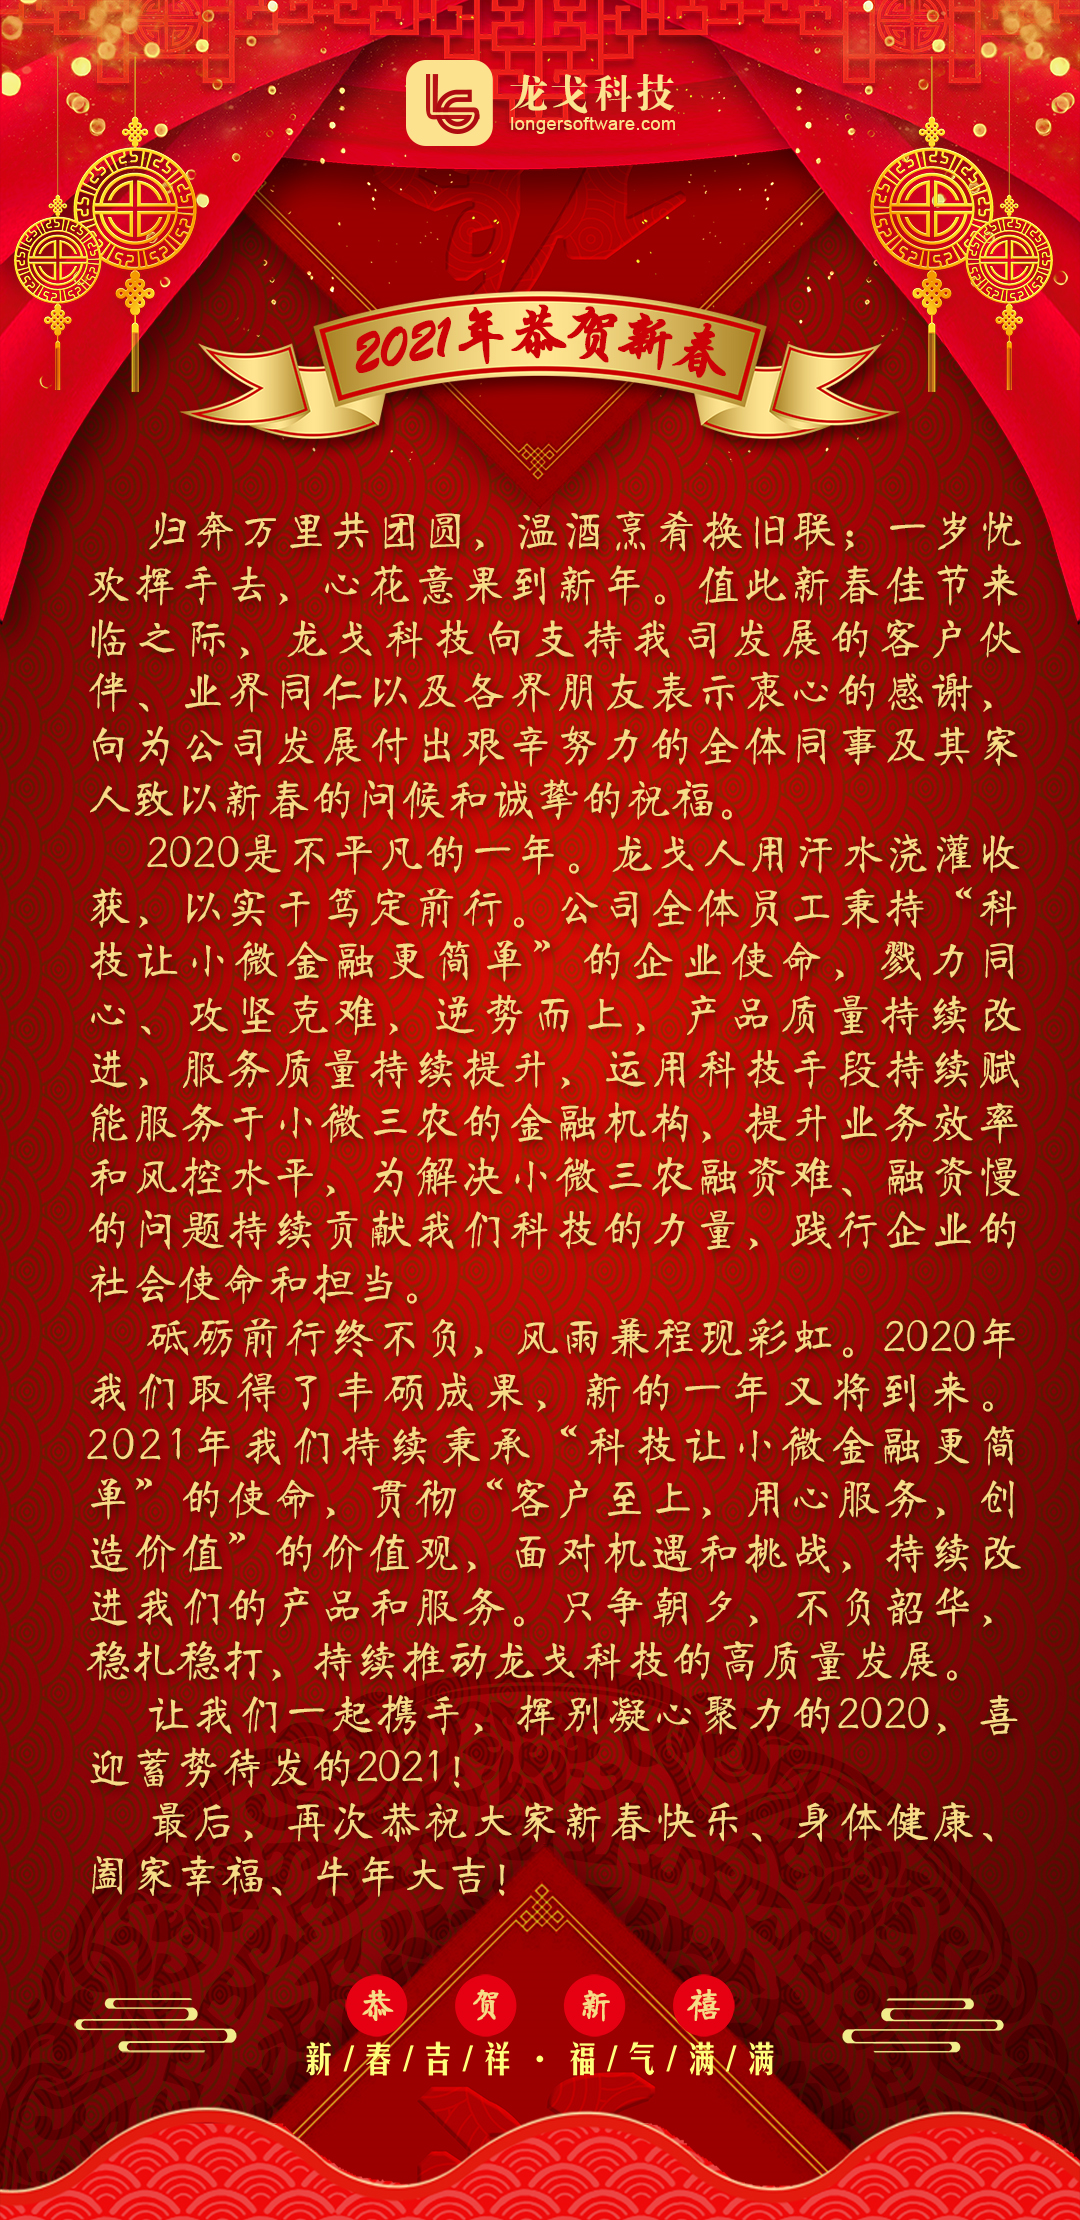 龙戈科技
longersoftware.com
2021年恭贺新春
归奔万里共团圆，温酒烹肴换旧联；一岁忧
欢挥手去，心花意果到新年。值此新春佳节来
临之际，龙戈科技向支持我司发展的客户伙
伴、业界同仁以及各界朋友表示衷心的感谢，
向为公司发展付出艰辛努力的全体同事及其家
人致以新春的问候和诚挚的祝福。
2020是不平凡的一年。龙戈人用汗水浇灌收
获，以实干笃定前行。公司全体员工秉持“科
技让小微金融更简单”的企业使命，戮力同
心、攻坚克难，逆势而上，产品质量持续改
进，服务质量持续提升，运用科技手段持续赋
能服务于小微三农的金融机构，提升业务效率
和风控水平，为解决小微三农融资难、融资慢
的问题持续贡献我们科技的力量，践行企业的
社会使命和担当。
砥砺前行终不负，风雨兼程现彩虹。2020年
我们取得了丰硕成果，新的一年又将到来。
2021年我们持续秉承“科技让小微金融更简
单”的使命，贯彻“客户至上，用心服务，创
造价值”的价值观，面对机遇和挑战，持续改
进我们的产品和服务。只争朝夕，不负韶华，
稳扎稳打，持续推动龙戈科技的高质量发展。
让我们一起携手，挥别凝心聚力的2020，喜
迎蓄势待发的2021！
最后，再次恭祝大家新春快乐、身体健康、
阖家幸福、牛年大吉！
恭贺新禧
新/春/吉/祥·福/气/满/满